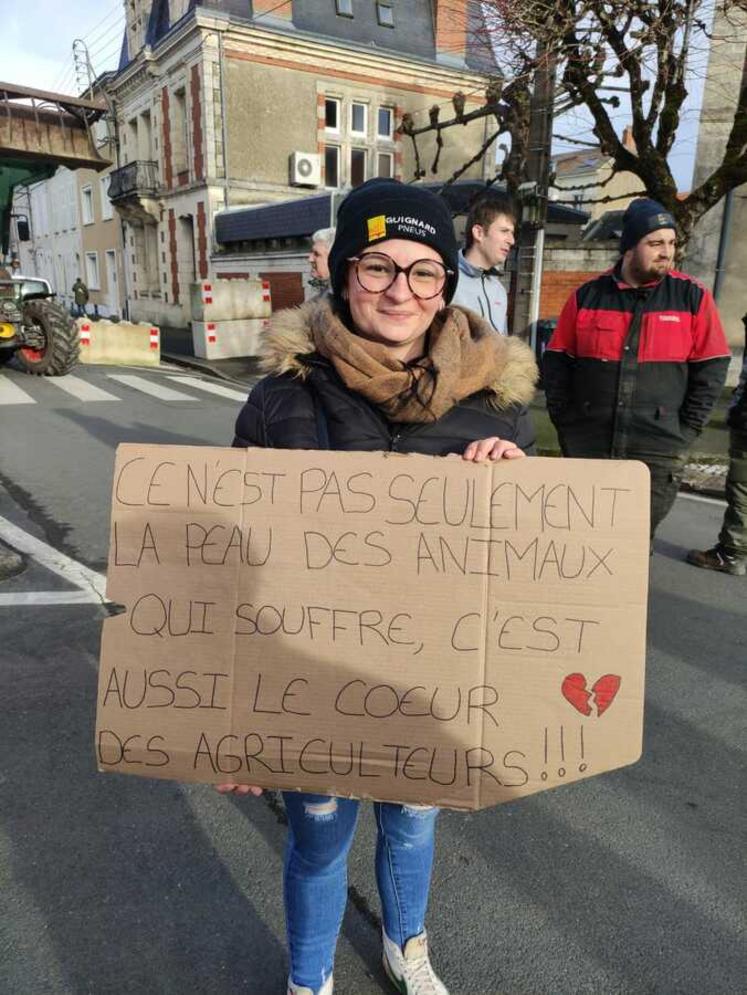 GUIGNARD
PNEUS
CE N'EST PAS SEULEMENT
LA PEAU DES ANIMAUX
QUI SOUFFRE, C'EST
AUSSI LE COEUR
DES AGRICULTEURS !!!